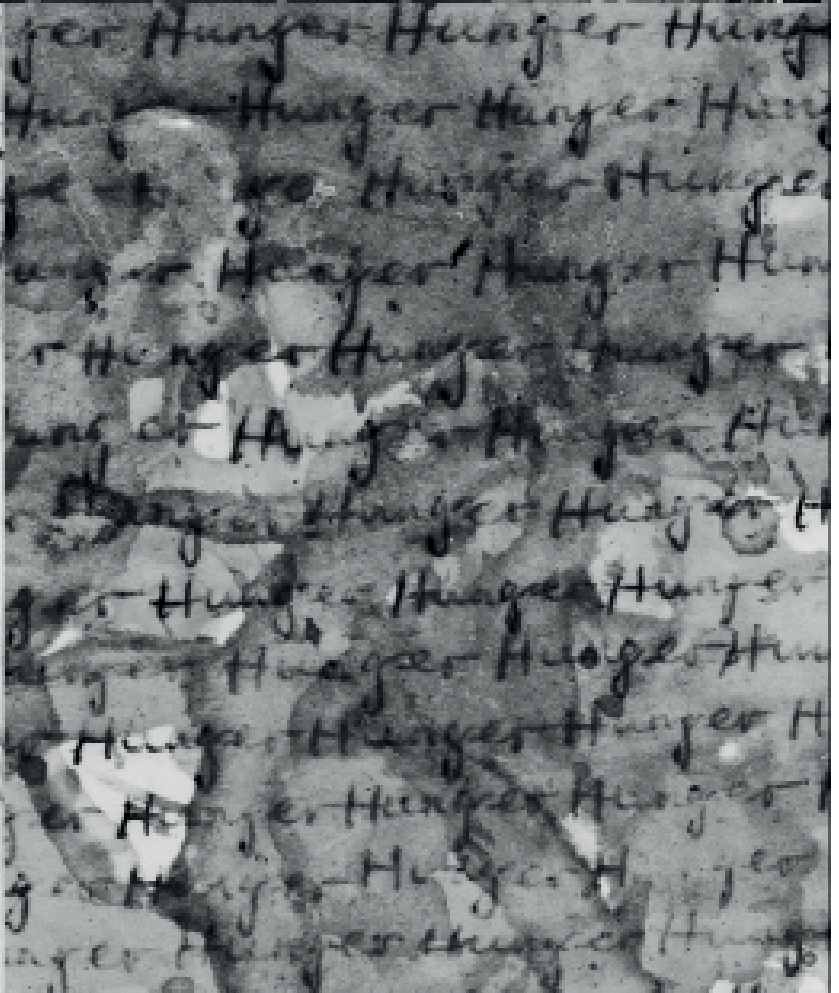 ger Hunger Hunger Hung
Hun Hunger Hunger Hung
ge Hunger Hunger
unger Hunger Hunger Hun
r Hunger Hunger Hunger
ung er Hunger Hunger Hun
Hunger Hunger Hunger H
ger Hunger Hunger Hunger
unger Hunger Hunger Hun
Hunger Hunger Hunger H
ger Hunger Hunger Hunger
g er Hunger Hunger H ger
unger Hunger Hunger Hung